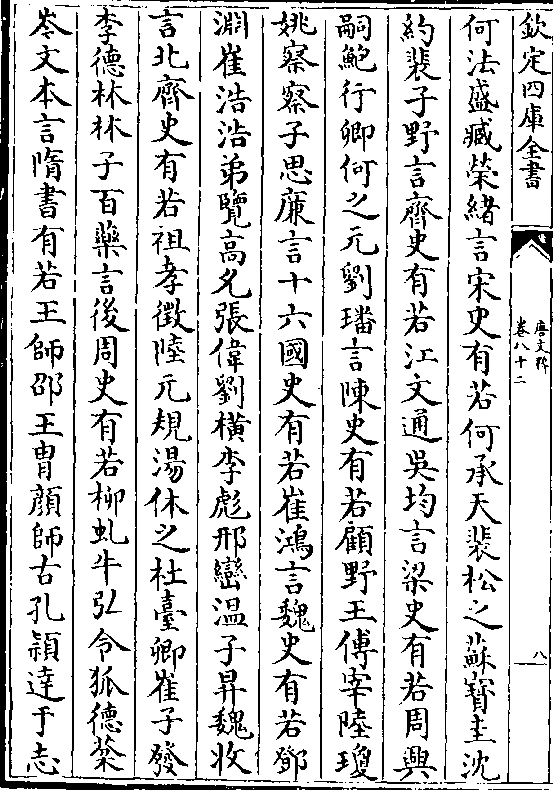 欽定四庫全書
唐文粹
卷八十二
八
何法盛臧榮緒言宋史有若何承天裴松之蘇寶圭沈
約裴子野言齊史有若江文通吳均言梁史有若周興
嗣鮑行卿何之元劉璠言陳史有若顧野王傅宰陸瓊
姚察察子思廉言十六國史有若崔鴻言魏史有若鄧
淵崔浩浩弟覽高允張偉劉橫李彪邢巒溫子昇魏收
言北齊史有若祖孝徵陸元規湯休之杜臺卿崔子發
李德林林子百藥言後周史有若柳虬牛弘令狐德棻
岑文本言隋書有若王師邵王胄顏師古孔穎達于志